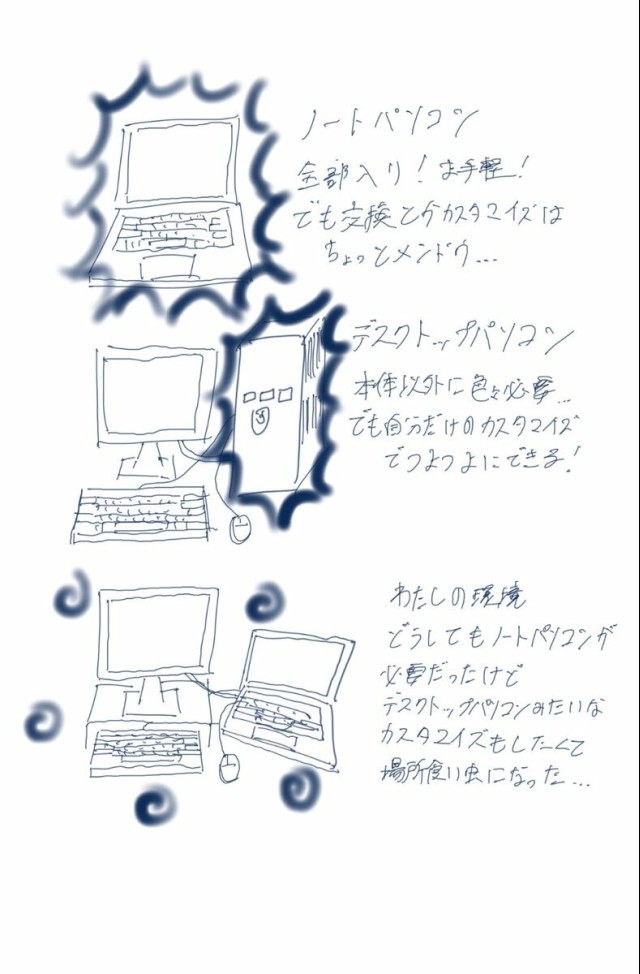 ノートパソコン
全部入り！お手軽！
でも交換とかカスタマイズは
ちょっとメンドウ...
デスクトップパソコン
本体以外に色々必要...
でも自分だけのカスタマイズ
でつよつよにできる！
わたしの環境
どうしてもノートパソコンが
必要だったけど
デスクトップパソコンみたいな
カスタマイズもしたくて
場所食い虫になった...